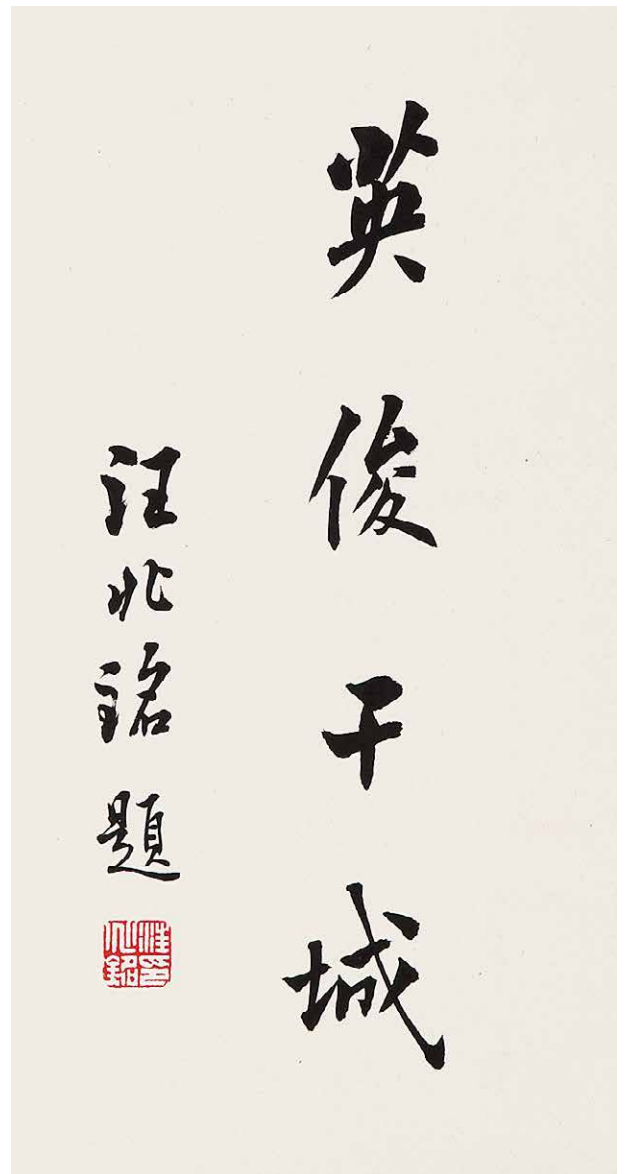 英俊干城
汪兆銘題
汪兆銘印